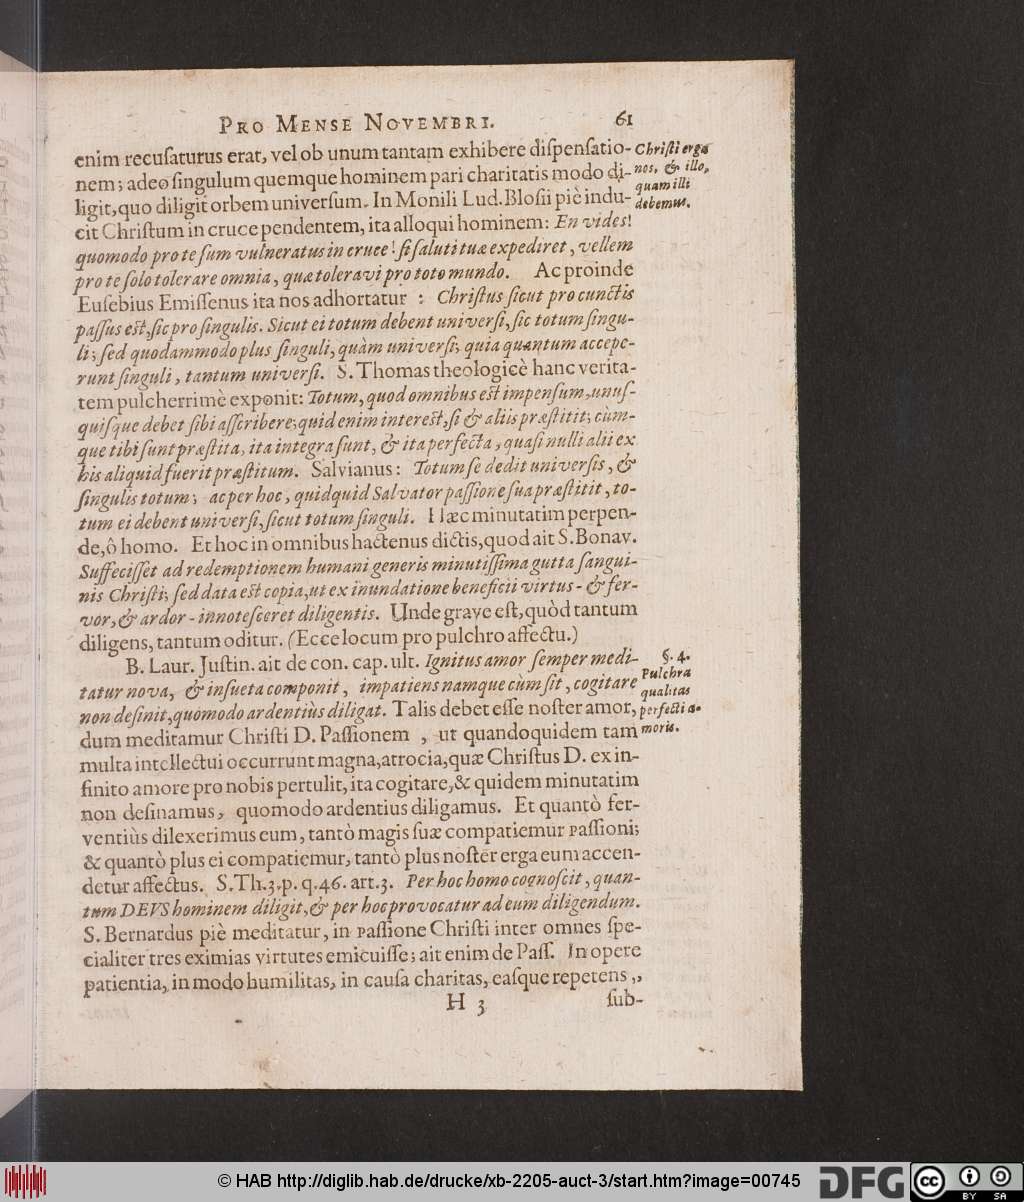 PRO MENSE NOVEMBRI. 61
enim recuſaturus erat, vel ob unum tantam exhibere diſpenſatio-
nem; adeo ſingulum quemque hominem pari charitatis modo di-
ligit, quo diligit orbem univerſum. In Monili Lud. Bloſii piè indu-
cit Chriſtum in cruce pendentem, ita alloqui hominem: En vides!
quomodo pro te ſum vulneratus in cruce! ſi ſaluti tuæ expediret, vellem
pro te ſolo tolerare omnia, quæ toleravi pro toto mundo. Ac proinde
Euſebius Emiſſenus ita nos adhortatur : Chriſtus ſicut pro cunctis
paſſus eſt, ſic pro ſingulis. Sicut ei totum debent univerſi, ſic totum ſingu-
li; ſed quodammodo plus ſinguli, quàm univerſi; quia quantum accepe-
runt ſinguli, tantum univerſi. S. Thomas theologicè hanc verita-
tem pulcherrime exponit: Totum, quod omnibus eſt impenſum, unuſ-
quiſque debet ſibi aſſcribere; quid enim intereſt, ſi & aliis præſtitit; cùm-
que tibi ſunt præſtita, ita integra ſunt, & ita perfecta, quaſi nulli alii ex
his aliquid fuerit præſtitum. Salvianus: Totum ſe dedit univerſis, &
ſingulis totum; ac per hoc, quidquid Salvator paſſione ſua præſtitit, to-
tum ei debent univerſi, ſicut totum ſinguli. Hæc minutatim perpen-
de, ô homo. Et hoc in omnibus hactenus dictis, quod ait S. Bonav.
Suffeciſſet ad redemptionem humani generis minutiſſima gutta ſangui-
nis Chriſti; ſed data eſt copia, ut ex inundatione beneficii virtus - & fer-
vor, & ardor - innoteſceret diligentis. Unde grave eſt, quòd tantum
diligens, tantum oditur. (Ecce locum pro pulchro affectu.)
B. Laur. Juſtin. ait de con. cap. ult. Ignitus amor ſemper medi-
tatur nova, & inſueta componit, impatiens namque cùm ſit, cogitare
non deſinit, quomodo ardentiùs diligat. Talis debet eſſe noſter amor,
dum meditamur Chriſti D. Paſſionem , ut quandoquidem tam
multa intellectui occurrunt magna, atrocia, quæ Chriſtus D. ex in-
finito amore pro nobis pertulit, ita cogitare, & quidem minutatim
non deſinamus, quomodo ardentius diligamus. Et quantò fer-
ventiùs dilexerimus eum, tantò magis ſuæ compatiemur paſſioni;
& quantò plus ei compatiemur, tantò plus noſter erga eum accen-
detur affectus. S. Th. 3. p. q. 46. art. 3. Per hoc homo cognoſcit, quan-
tum DEVS hominem diligit, & per hoc provocatur ad eum diligendum.
S. Bernardus piè meditatur, in paſſione Chriſti inter omnes ſpe-
cialiter tres eximias virtutes emicuiſſe; ait enim de Paſſ. In opere
patientia, in modo humilitas, in cauſa charitas, eaſque repetens ,,
H 3 ſub-
Chriſti erga
nos, & illo,
quam illi
debemus.
§. 4.
Pulchra
qualitas
perfecti a-
moris.
© HAB http://diglib.hab.de/drucke/xb-2205-auct-3/start.htm?image=00745
DFG
cc BY SA